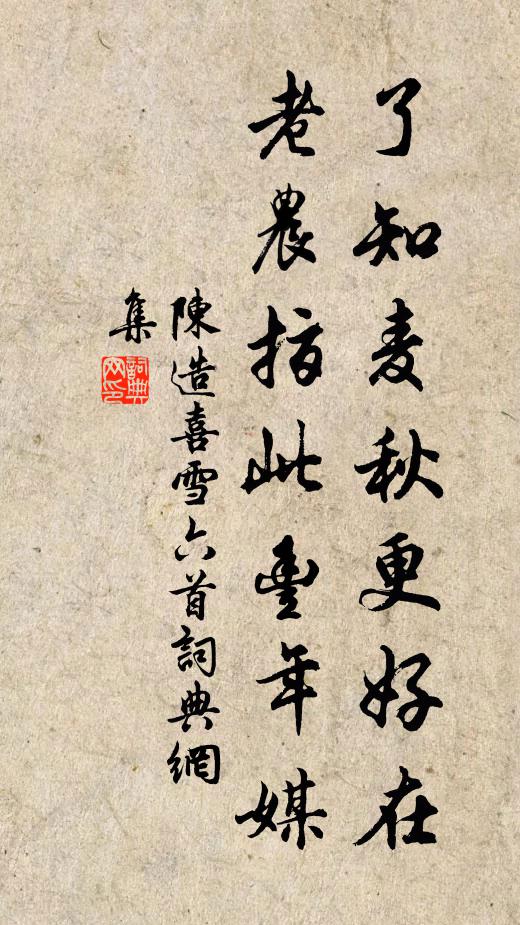 了知麦秋更好在
老農指此豊年媒
陳造喜雪六首詞典網
集
詞典网印